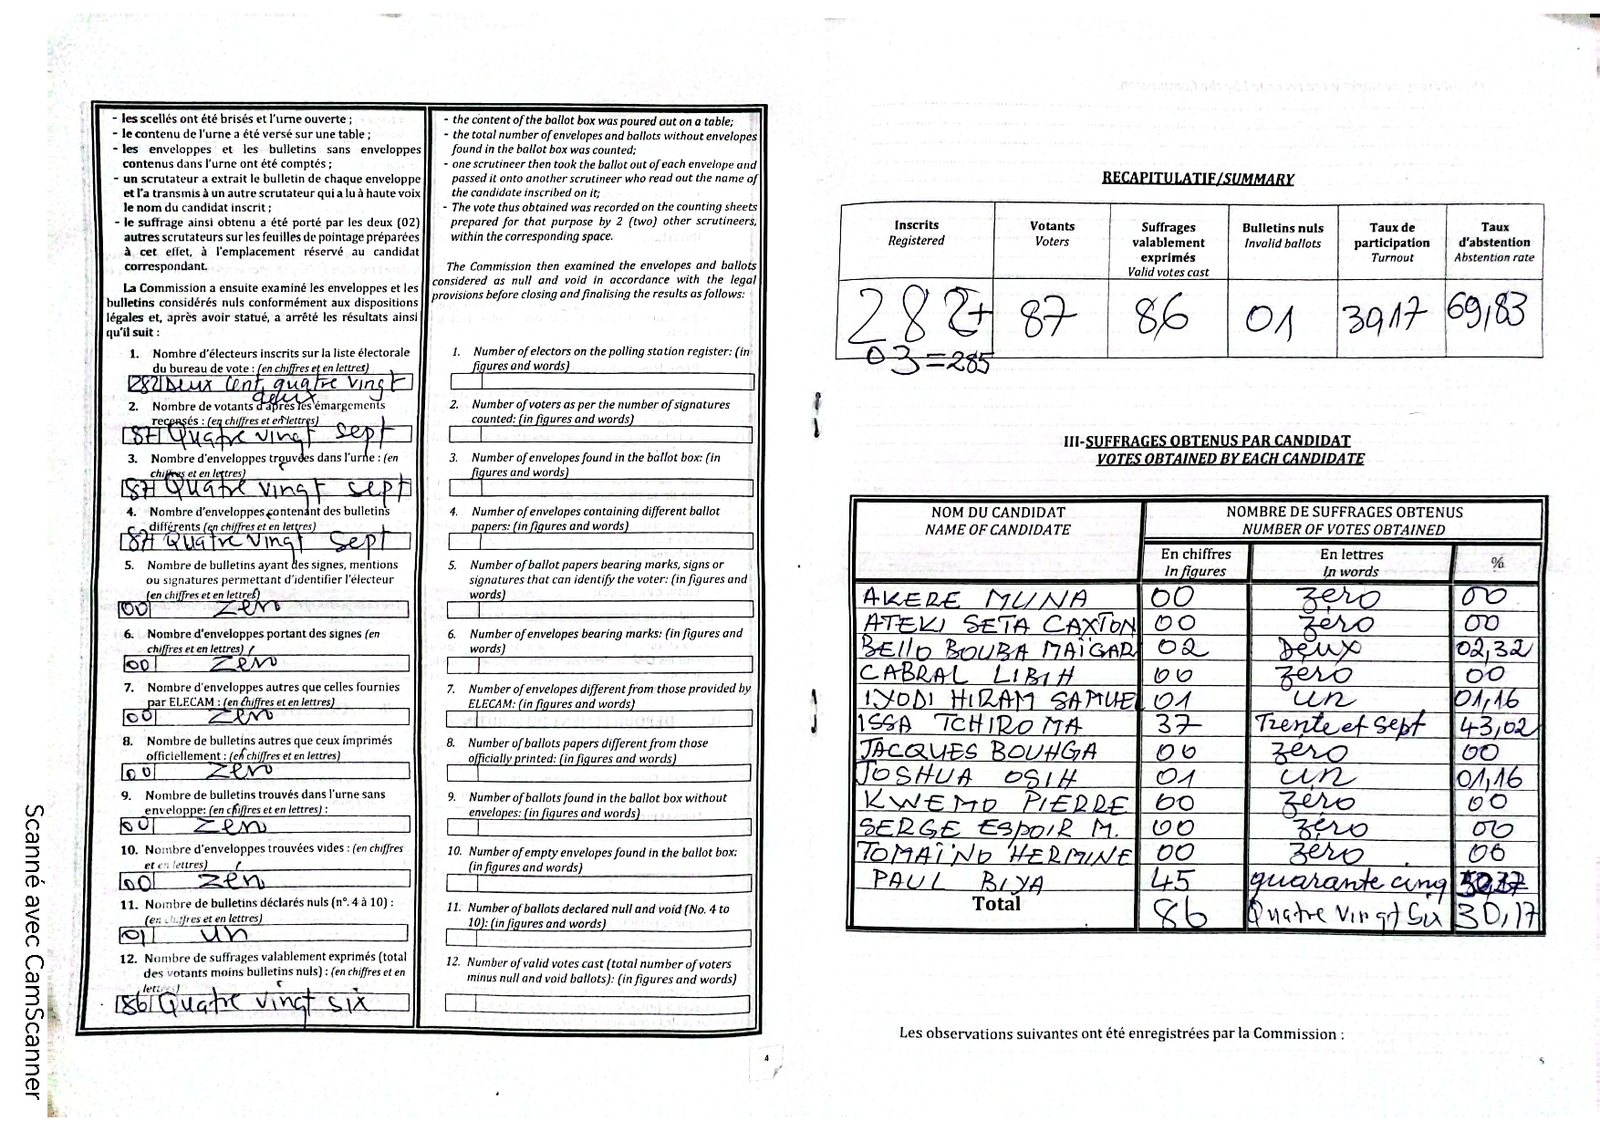 - les scellés ont été brisés et l'urne ouverte ;
- le contenu de l'urne a été versé sur une table ;
- les enveloppes et les bulletins sans enveloppes
contenus dans l'urne ont été comptés ;
- un scrutateur a extrait le bulletin de chaque enveloppe
et l'a transmis à un autre scrutateur qui a lu à haute voix
le nom du candidat inscrit ;
- le suffrage ainsi obtenu a été porté par les deux (02)
autres scrutateurs sur les feuilles de pointage préparées
à cet effet, à l'emplacement réservé au candidat
correspondant.
La Commission a ensuite examiné les enveloppes et les
bulletins considérés nuls conformément aux dispositions
légales et, après avoir statué, a arrêté les résultats ainsi
qu'il suit :
1. Nombre d'électeurs inscrits sur la liste électorale
du bureau de vote : (en chiffres et en lettres)
282 Deux Cent quatre vingt
deux
2. Nombre de votants d'après les émargements
recensés : (en chiffres et en lettres)
87 Quatre vingt sept
3. Nombre d'enveloppes trouvées dans l'urne : (en
chiffres et en lettres)
87 Quatre vingt sept
4. Nombre d'enveloppes contenant des bulletins
différents (en chiffres et en lettres)
87 Quatre vingt sept
5. Nombre de bulletins ayant des signes, mentions
ou signatures permettant d'identifier l'électeur
(en chiffres et en lettres)
00 zéro
6. Nombre d'enveloppes portant des signes (en
chiffres et en lettres)
00 zéro
7. Nombre d'enveloppes autres que celles fournies
par ELECAM : (en chiffres et en lettres)
00 zéro
8. Nombre de bulletins autres que ceux imprimés
officiellement : (en chiffres et en lettres)
00 zéro
9. Nombre de bulletins trouvés dans l'urne sans
enveloppe: (en chiffres et en lettres) :
00 zéro
10. Nombre d'enveloppes trouvées vides : (en chiffres
et en lettres)
00 zéro
11. Nombre de bulletins déclarés nuls (n°. 4 à 10) :
(en chiffres et en lettres)
01 un
12. Nombre de suffrages valablement exprimés (total
des votants moins bulletins nuls) : (en chiffres et en
lettres)
86 Quatre vingt six
- the content of the ballot box was poured out on a table;
- the total number of envelopes and ballots without envelopes
found in the ballot box was counted;
- one scrutineer then took the ballot out of each envelope and
passed it onto another scrutineer who read out the name of
the candidate inscribed on it;
- The vote thus obtained was recorded on the counting sheets
prepared for that purpose by 2 (two) other scrutineers,
within the corresponding space.
The Commission then examined the envelopes and ballots
considered as null and void in accordance with the legal
provisions before closing and finalising the results as follows:
1. Number of electors on the polling station register: (in
figures and words)
2. Number of voters as per the number of signatures
counted: (in figures and words)
3. Number of envelopes found in the ballot box: (in
figures and words)
4. Number of envelopes containing different ballot
papers: (in figures and words)
5. Number of ballot papers bearing marks, signs or
signatures that can identify the voter: (in figures and
words)
6. Number of envelopes bearing marks: (in figures and
words)
7. Number of envelopes different from those provided by
ELECAM: (in figures and words)
8. Number of ballots papers different from those
officially printed: (in figures and words)
9. Number of ballots found in the ballot box without
envelopes: (in figures and words)
10. Number of empty envelopes found in the ballot box:
(in figures and words)
11. Number of ballots declared null and void (No. 4 to
10): (in figures and words)
12. Number of valid votes cast (total number of voters
minus null and void ballots): (in figures and words)
4
Scanné avec CamScanner
RECAPITULATIF/SUMMARY
Inscrits Votants Suffrages valablement exprimés Bulletins nuls Taux de participation Taux d'abstention
Registered Voters Valid votes cast Invalid ballots Turnout Abstention rate
282+ 87 86 01 30,17 69,83
03=285
III-SUFFRAGES OBTENUS PAR CANDIDAT
VOTES OBTAINED BY EACH CANDIDATE
NOM DU CANDIDAT NOMBRE DE SUFFRAGES OBTENUS
NAME OF CANDIDATE NUMBER OF VOTES OBTAINED
En chiffres En lettres %
In figures In words
AKERE MUNA 00 zéro 00
ATEKI SETA CAXTON 00 zéro 00
BEllO BOUBA MAÏGAR 02 Deux 02,32
CABRAL LIBIH 00 zéro 00
IYODI HIRAM SAMUEL 01 un 01,16
ISSA TCHIROMA 37 Trente et Sept 43,02
JACQUES BOUHGA 00 zéro 00
JOSHUA OSIH 01 un 01,16
KWEMO PIERRE 00 zéro 00
SERGE ESPOIR M. 00 zéro 00
TOMAÏNO HERMINE 00 zéro 00
PAUL BIYA 45 quarante cinq
Total 86 Quatre vingt Six 30,17
Les observations suivantes ont été enregistrées par la Commission :
5